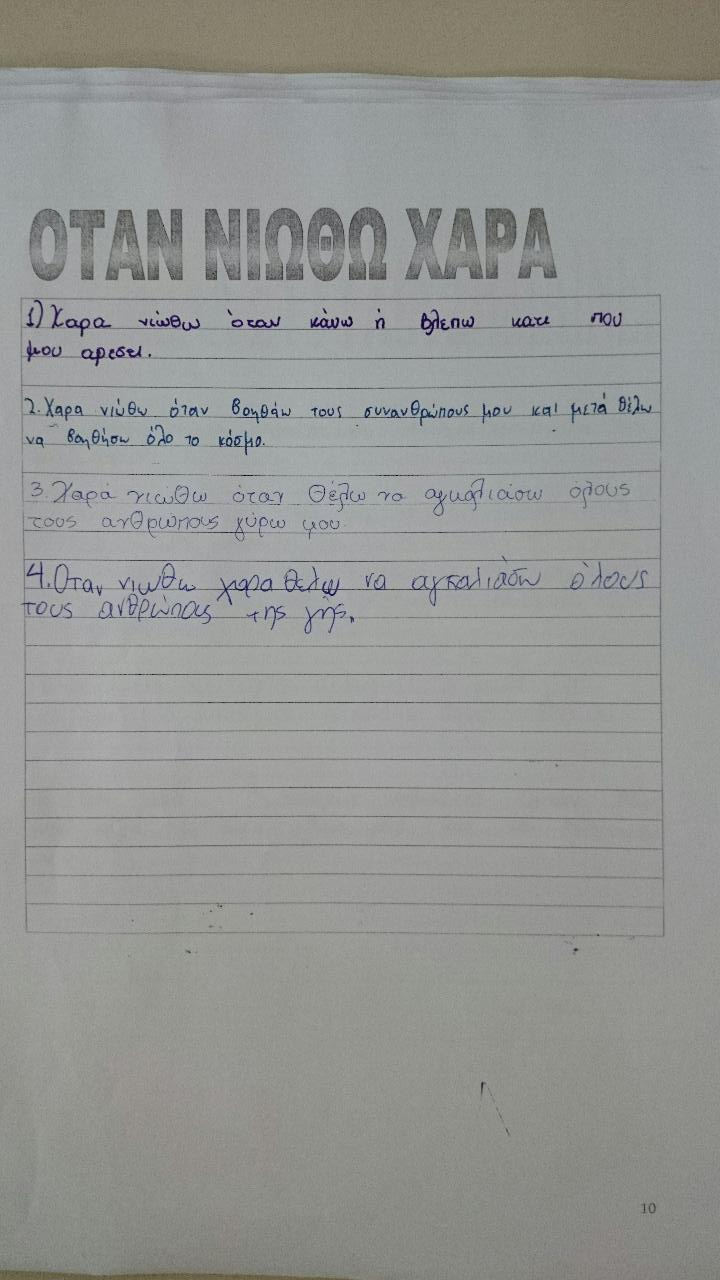 ΟΤΑΝ ΝΙΩΘΩ ΧΑΡΑ
1) Χαρα νιωθω όταν κάνω ή βλεπω κατι που
μου αρεσει.
2. Χαρα νιώθω όταν βοηθάω τους συνανθρώπους μου και μετά θέλω
να βοηθήσω όλο το κόσμο.
3. Χαρά νιώθω όταν θέλω να αγκαλιάσω όλους
τους ανθρώπους γύρω μου.
4. Όταν νιωθω χαρα θελω να αγκαλιάσω όλους
τους ανθρώπους της γής.
10